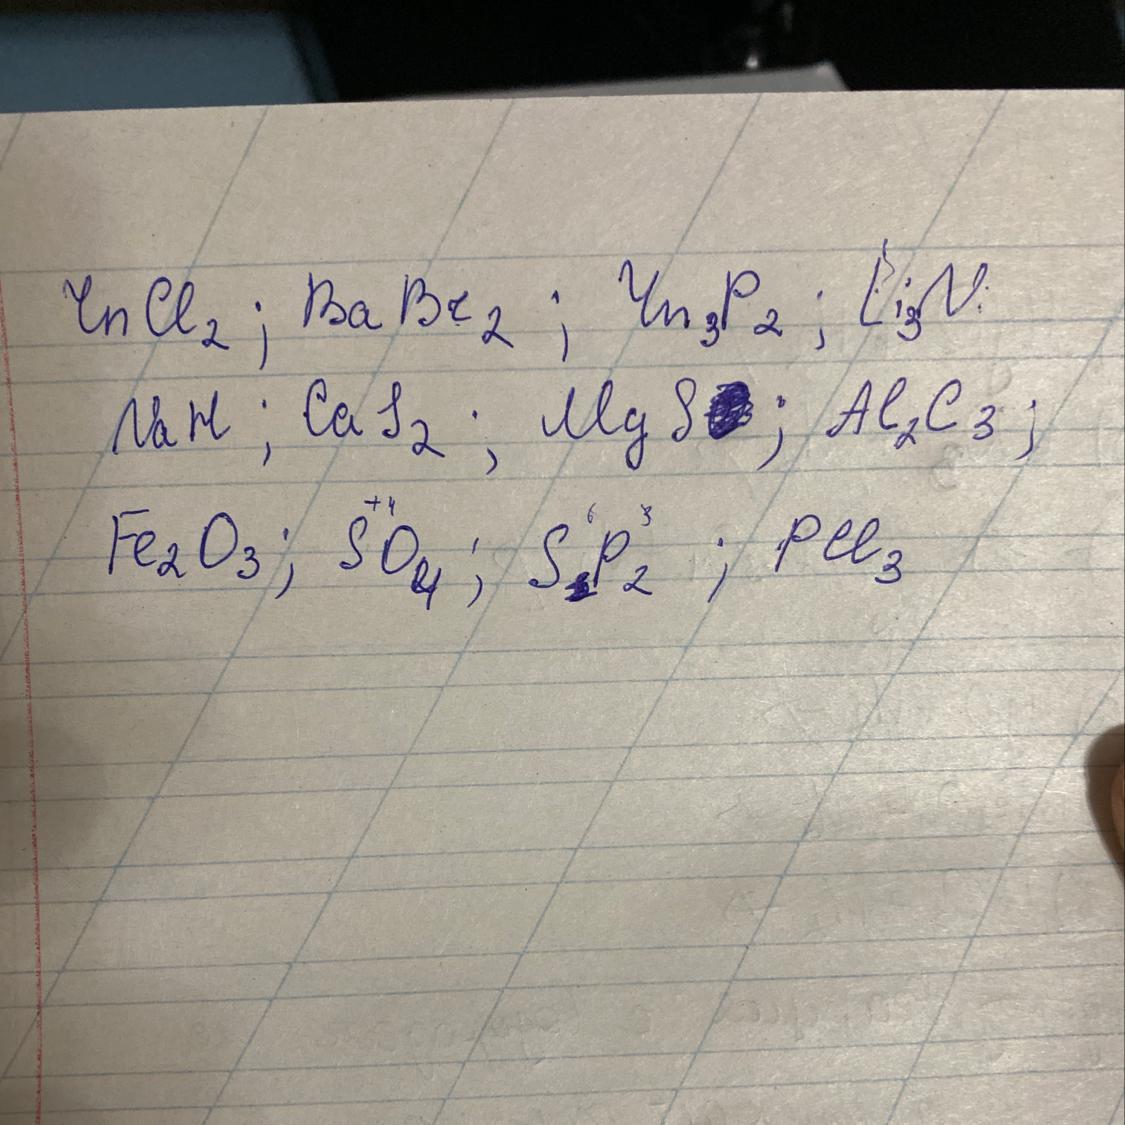 ZnCl2; BaBr2; Zn3P2; Li3N
NaH; CaS2; MgS; Al2C3;
Fe2O3; S+4O4; S6P32; PCl3